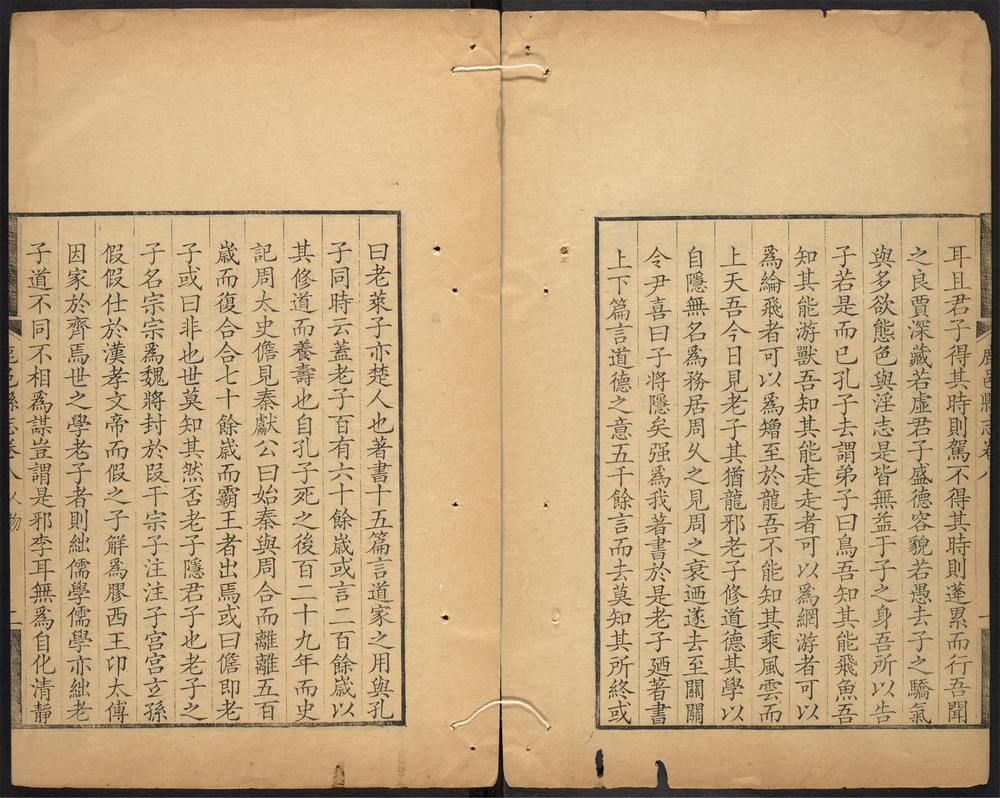 耳且君子得其時則駕不得其時則蓬累而行吾聞
之良賈深藏若虛君子盛德容貌若愚去子之驕氣
與多欲態色與淫志是皆無益于子之身吾所以告
子若是而已孔子去謂弟子曰鳥吾知其能飛魚吾
知其能游獸吾知其能走走者可以爲網游者可以
爲綸飛者可以爲矰至於龍吾不能知其乘風雲而
上天吾今日見老子其猶龍邪老子修道德其學以
自隱無名爲務居周久之見周之衰迺遂去至關關
令尹喜曰子將隱矣强爲我著書於是老子廼著書
上下篇言道德之意五千餘言而去莫知其所終或
曰老萊子亦楚人也著書十五篇言道家之用與孔
子同時云蓋老子百有六十餘歲或言二百餘歲以
其修道而養壽也自孔子死之後百二十九年而史
記周太史儋見秦獻公曰始秦與周合而離離五百
歲而復合合七十餘歲而霸王者出焉或曰儋即老
子或曰非也世莫知其然否老子隱君子也老子之
子名宗宗爲魏將封於叚干宗子注注子宮宮玄孫
假假仕於漢孝文帝而假之子解爲膠西王卬太傅
因家於齊焉世之學老子者則絀儒學儒學亦絀老
子道不同不相爲謀豈謂是邪李耳無爲自化清靜
鹿邑縣志卷八
一
鹿邑縣志卷八 人物 二